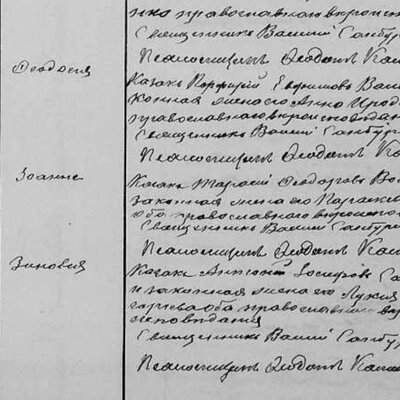 православнаго вероиспо
Священникъ Василій Санбур
Псаломщикъ Ѳеодотъ Ка
Ѳеодосія
Казакъ Порфирій Евфимовъ Вас
законная жена его Анна Ирод
православнаго вероисповедан
Священникъ Василій Санбур
Псаломщикъ Ѳеодотъ К
Іоаннъ
Казакъ Тарасій Ѳеодоровъ Во
законная жена его Параскев
оба православнаго вероиспо
Священникъ Василій Санбур
Псаломщикъ Ѳеодотъ Ка
Зиновія
Казакъ Антоній Іосифовъ Са
и законная жена его Лукія
оба православнаго
исповеданія
Священникъ Василій Санбур
Псаломщикъ Ѳеодотъ Ка